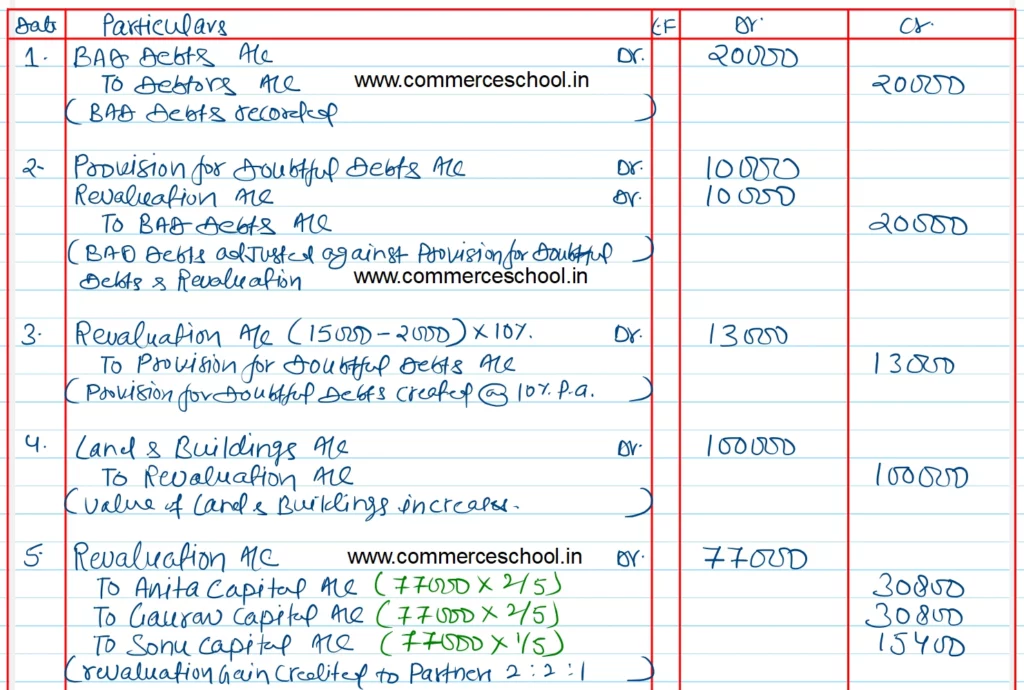 Date Particulars L.F Dr. Cr.
1. BAD Debts A/c Dr. 20000
To Debtors A/c www.commerceschool.in 20000
(BAD Debts recorded)
2- Provision for Doubtful Debts A/c Dr. 10000
Revaluation A/c Dr. 10000
To BAD Debts A/c 20000
(BAD Debts adjusted against Provision for Doubtful
Debts & Revaluation www.commerceschool.in )
3. Revaluation A/c (15000-2000)×10%. Dr. 13000
To Provision for Doubtful Debts A/c 13000
(Provision for Doubtful Debts created @ 10% p.a.)
4. Land & Buildings A/c Dr. 100000
To Revaluation A/c 100000
(Value of Land & Buildings increases.)
5. Revaluation A/c www.commerceschool.in Dr. 77000
To Anita Capital A/c (77000 × 2/5) 30800
To Gaurav Capital A/c (77000 × 2/5) 30800
To Sonu Capital A/c (77000 × 1/5) 15400
(revaluation Gain Credited to Partner 2:2:1)